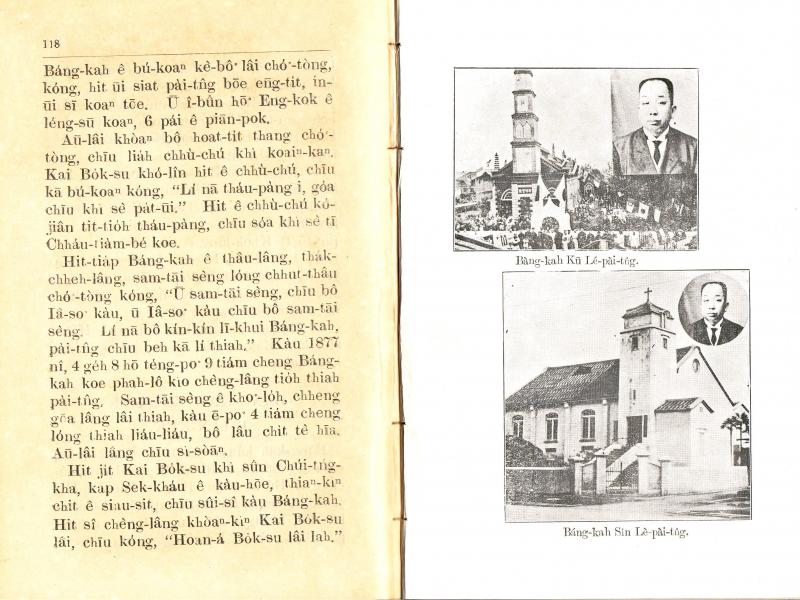 118
Báng-kah ê bú-koaⁿ kè-bô͘ lâi chó͘-tòng,
kóng, hit ūi siat pài-tn̂g bōe eng-tit, in-
ūi sī koaⁿ tōe. Ū î-bûn hō͘ Eng-kok ê
léng-sū koaⁿ, 6 pái ê piān-pok.
Aū-lâi khòaⁿ bô hoat-tit thang chó͘-
tòng, chīu liáh chhù-chú khì koaiⁿ-kaⁿ.
Kai Bo̍k-su khó-lîn hit ê chhù-chú, chīu
kā bú-koaⁿ kóng, “Lí nā tháu-pàng i, góa
chīu khì sè pa̍t-ūi.” Hit ê chhù-chú kó͘-
jiân tit-tio̍h tháu-pàng, chīu sóa khì sè tī
Chháu-tiàm-bé koe.
Hit-tia̍p Báng-kah ê thâu-lâng, tha̍k-
chheh-lâng, sam-tāi sèng lóng chhut-thâu
chó͘-tòng kóng, “Ū sam-tāi sèng, chīu bô
Iâ-so͘ kàu, ū Iâ-so͘ kàu chīu bô sam-tāi
sèng. Lí nā bô kín-kín lī-khui Báng-kah,
pài-tn̂g chīu beh kā lí thiah.” Kàu 1877
nî, 4 ge̍h 8 hō téng-po͘ 9 tiám cheng Báng-
kah koe phah-lô kio chèng-lâng tio̍h thiah
pài-tn̂g. Sam-tāi sèng ê kho͘-lo̍h, chheng
gōa lâng lâi thiah, kàu ē-po͘ 4 tiám cheng
lóng thiah liáu-liáu, bô lâu chi̍t tè hīa.
Aū-lâi lâng chīu sì-sòaⁿ.
Hit ji̍t Kai Bo̍k-su khì sûn Chúi-tn̂g-
kha, kap Sek-kháu ê kàu-hōe, thiaⁿ-kìn
chit ê siau-sit, chīu sûi-sî kàu Báng-kah.
Hit sî chèng-lâng khòaⁿ-kìn Kai Bo̍k-su
lâi, chīu kóng, “Hoan-á Bo̍k-su lâi lah.”
Báng-kah Kū Lé-pài-tn̂g.
Báng-kah Sin Lé-pài-tn̂g.